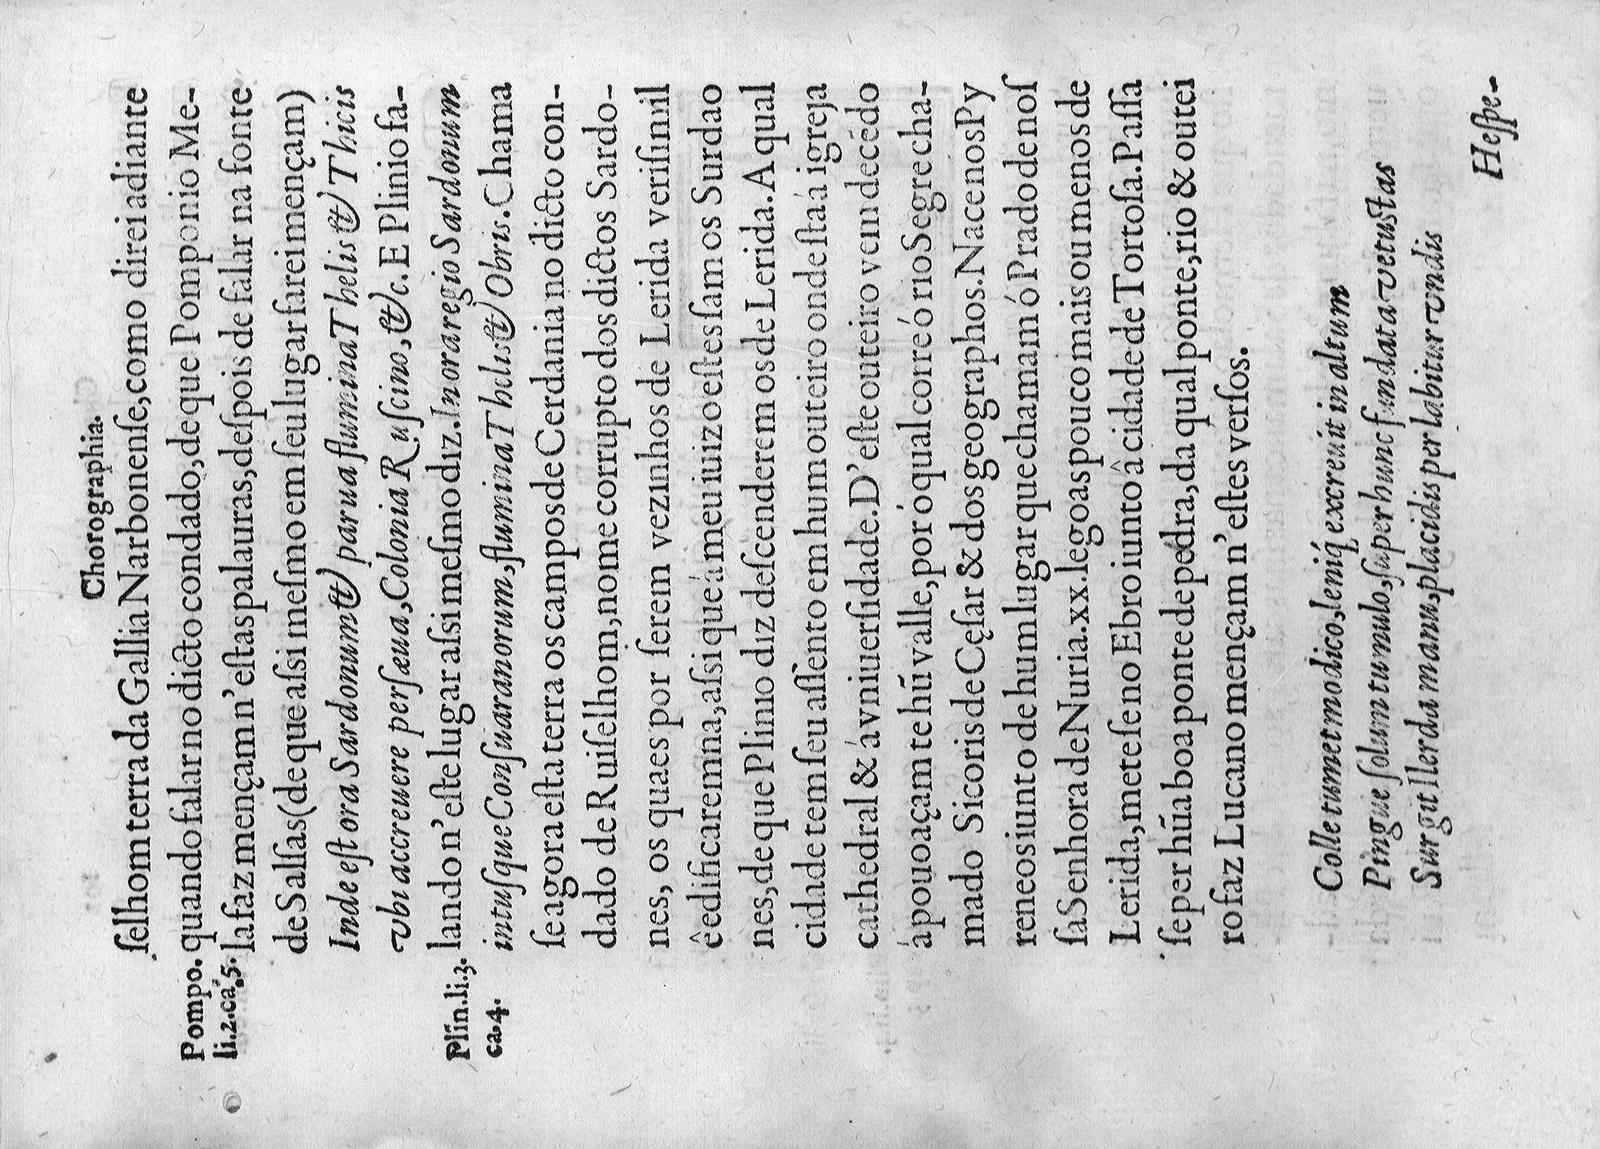 Chorographia.
ſelhom terra da Gallia Narbonenſe, como direi adiante
Pompo. quando falar no dicto condado, de que Pomponio Me-
li. 2. ca. 5. la faz mençam n'eſtas palauras, deſpois de falar na fonte
de Salſas (de que aſsi meſmo em ſeu lugar farei mençam)
Inde eſt ora Sardonum & parua flumina Thelis & Thicis
vbi accreuere perſæua, Colonia Ruſcino, &c. E Plinio fa-
Plin. li. 3. lando n'eſte lugar aſsi meſmo diz. In ora regio Sardonum
ca. 4. intuſque Conſuaranorum, flumina Thelis & Obris. Chama
ſe agora eſta terra os campos de Cerdania no dicto con-
dado de Ruiſelhom, nome corrupto dos dictos Sardo-
nes, os quaes por ſerem vezinhos de Lerida veriſimil
ê edificaremna, aſsi que á meu iuizo eſtes ſam os Surdao
nes, de que Plinio diz deſcenderem os de Lerida. A qual
cidade tem ſeu aſſento em hum outeiro onde eſta á igreja
cathedral & á vniuerſidade. D'eſte outeiro vem decédo
á pouoaçam te hũ valle, por ó qual corre ó rio Segre cha-
mado Sicoris de Cęſar & dos geographos. Nace nos Py
reneos iunto de hum lugar que chamam ó Prado de noſ
ſa Senhora de Nuria. xx. legoas pouco mais ou menos de
Lerida, mete ſe no Ebro iunto â cidade de Tortoſa. Paſſa
ſe per hũa boa ponte de pedra, da qual ponte, rio & outei
ro faz Lucano mençam n'eſtes verſos.
Colle tumet modico, leniq́ excreuit in altum
Pingue ſolum tumulo, ſuper hunc fundata vetuſtas
Surgit Ilerda manu, placidis per labitur vndis
Heſpe-